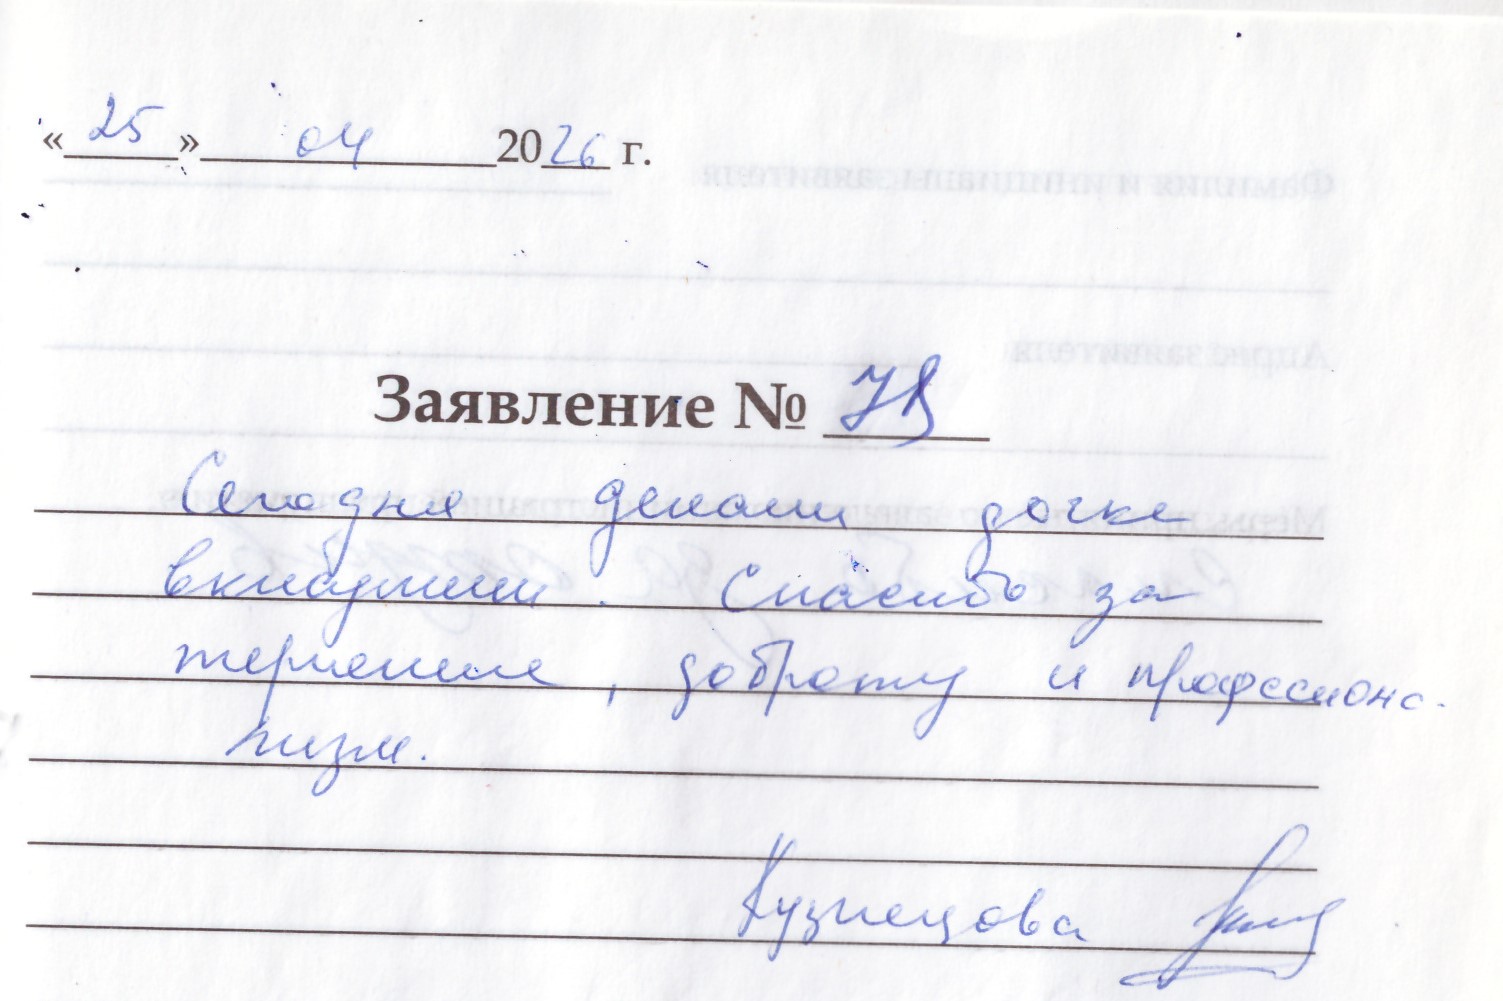 «25» 04 2026 г.
Заявление № 78
Сегодня делали дочке
Спасибо за
терпение, доброту и профессиона-
лизм.
Кузнецова